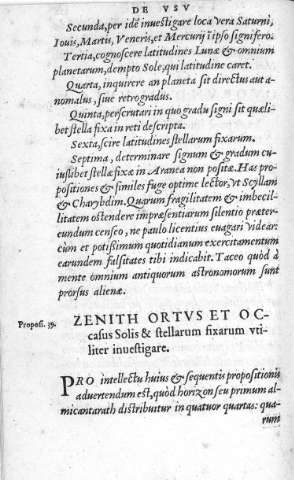 DE VSV
Secunda, per idē inuestigare loca vera Saturni,
Iouis, Martis, Veneris, et Mercurij ĩ ipso signifero.
Tertia, cognoscere latitudines Lunæ & omnium
planetarum, dempto Sole, qui latitudine caret.
Quarta, inquirere an planeta sit directus aut a-
nomalus, siue retrogradus.
Quinta, perscrutari in quo gradu signi sit quæli-
bet stella fixa in reti descripta.
Sexta, scire latitudines stellarum fixarum.
Septima, determinare signum & gradum cu-
iuslibet stellæ fixæ in Aranea non positæ. Has pro-
positiones & similes fuge optime lector, vt Scyllam
& Charybdim. Quarum fragilitatem & imbecil-
litatem ostendere impræsentiarum silentio præter-
eundum censeo, ne paulo licentius euagari videar:
cùm et potissimum quotidianum exercitamentum
earundem falsitates tibi indicabit. Taceo quòd à
mente omnium antiquorum astronomorum sunt
prorsus alienæ.
Proposi. 39.
ZENITH ORTVS ET OC-
casus Solis & stellarum fixarum vti-
liter inuestigare.
PRO intellectu huius & sequentis propositionis
aduertendum est, quòd horizon seu primum al-
micantarath distribuitur in quatuor quartas: qua-
rum